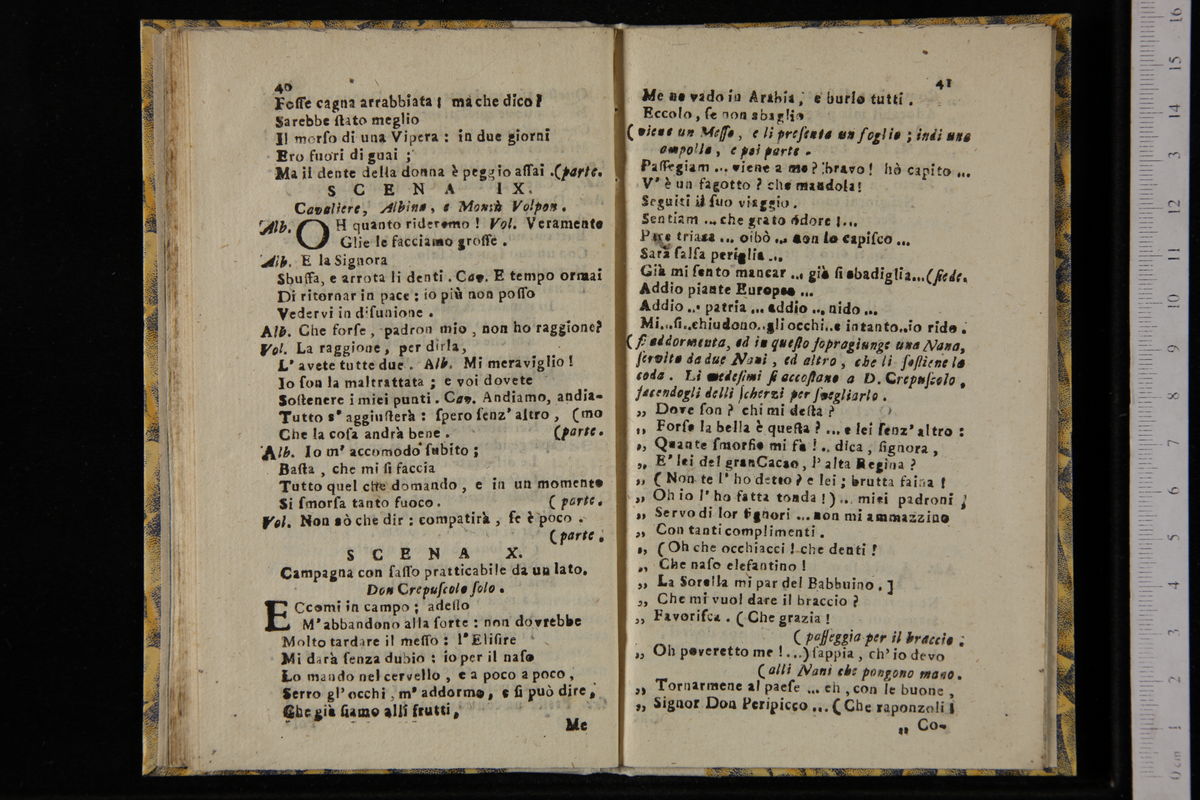 40
Fosse cagna arrabbiata! ma che dico?
Sarebbe ſtato meglio
Il morſo di una Vipera : in due giorni
Ero fuori di guai ;
Ma il dente della donna è peggio aſſai .(parte.
SCENA IX.
Cavaliere, Albina, e Monsù Volpon.
Alb. OH quanto rideremo ! Vol. Veramente
Glie le facciamo groſſe .
Alb. E la Signora
Sbuffa, e arrota li denti . Cav. E tempo ormai
Di ritornar in pace : io più non poſſo
Vedervi in diſunione .
Alb. Che forſe , padron mio , non ho raggione?
Vol. La raggione, per dirla,
L' avete tutte due . Alb. Mi meraviglio !
Io ſon la maltrattata ; e voi dovete
Soſtenere i miei punti . Cav. Andiamo, andia-
Tutto s' aggiuſterà : ſpero ſenz' altro , (mo
Che la coſa andrà bene . (parte.
Alb. Io m' accomodo ſubito ;
Baſta , che mi ſi faccia
Tutto quel che domando , e in un momento
Si ſmorſa tanto fuoco. (parte.
Vol. Non sò che dir : compatirà , ſe è poco .
(parte.
SCENA X.
Campagna con ſaſſo pratticabile da un lato.
Don Crepuſcolo ſolo .
ECcomi in campo ; adeſſo
M'abbandono alla ſorte : non dovrebbe
Molto tardare il meſſo : l'Eliſire
Mi darà ſenza dubio : io per il naſo
Lo mando nel cervello , e a poco a poco ,
Serro gl' occhi , m' addormo, e ſi può dire,
Che già ſiamo alli frutti,
Me
41
Me ne vado in Arabia, e burlo tutti .
Eccolo, ſe non sbaglio
(viene un Meſſo, e li preſenta un foglio ; indi una
ampolla, e poi parte .
Paſſegiam ... viene a me ? bravo! hò capito ...
V' è un fagotto ? che mandola!
Seguiti il ſuo viaggio .
Sentiam ... che grato odore !...
Pare triaca ... oibò ... non lo capiſco ...
Sarà ſalſa periglia ...
Già mi ſento mancar ... già ſi sbadiglia...(ſiede.
Addio piante Europee ...
Addio ... patria ... addio ... nido ...
Mi...ſi..chiudono..gli occhi..e intanto..io rido .
(ſi addormenta, ed in queſto ſopragiunge una Nana,
ſervita da due Nani , ed altro , che li ſoſtiene la
coda . Li medeſimi ſi accoſtano a D. Crepuſcolo,
facendogli delli ſcherzi per ſvegliarlo .
„ Dove ſon ? chi mi deſta ?
„ Forſe la bella è queſta ? ... e lei ſenz' altro :
„ Quante ſmorfie mi fà ! .. dica , ſignora ,
„ E' lei del granCacao, l' alta Regina ?
„ ( Non te l' ho detto ? e lei ; brutta faina !
„ Oh io l' ho fatta tonda ! ) ... miei padroni ,
„ Servo di lor ſignori ... non mi ammazzino
„ Con tanti complimenti .
„ (Oh che occhiacci ! che denti !
„ Che naſo elefantino !
„ La Sorella mi par del Babbuino . ]
„ Che mi vuol dare il braccio ?
„ Favoriſca . ( Che grazia !
( paſſeggia per il braccio .
„ Oh poveretto me !...) ſappia , ch' io devo
(alli Nani che pongono mano.
„ Tornarmene al paeſe ... eh , con le buone ,
„ Signor Don Peripicco ... ( Che raponzoli !
„ Co-